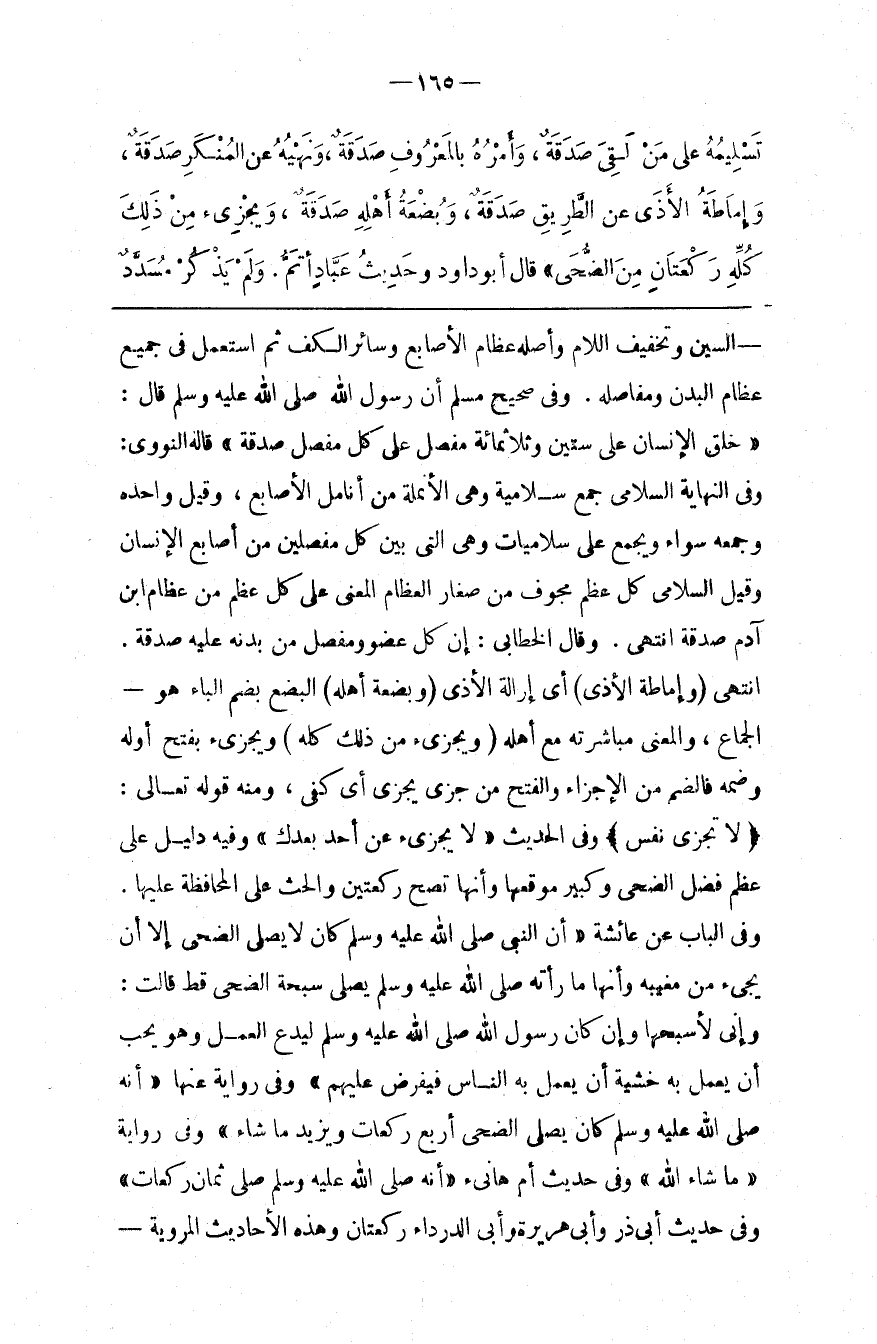 —١٦٥—
تَسْلِيمُهُ على مَنْ لَقِيَ صَدَقَةٌ ، وَأَمْرُهُ بالمَعْرُوفِ صَدَقَةٌ ، وَنَهْيُهُ عن المُنْكَرِ صَدَقَةٌ ،
وَإِمَاطَةُ الأَذَى عن الطَّرِيقِ صَدَقَةٌ ، وَبُضْعَةُ أَهْلِهِ صَدَقَةٌ ، وَيجْزِىء مِنْ ذَلِكَ
كُلِّهِ رَكْعَتَانِ مِنَ الضُّحَى» قال أبو داود وحَدِيثُ عَبَّادٍ أتَمُّ . وَلَمْ يَذْكُرْ مُسَدَّدٌ
—السين وتخفيف اللام وأصله عظام الأصابع وسائر الكف ثم استعمل فى جميع
عظام البدن ومفاصله . وفى صحيح مسلم أن رسول الله صلى الله عليه وسلم قال :
« خلق الإنسان على ستين وثلاثمائة مفصل على كل مفصل صدقة » قاله النووى:
وفى النهاية السلامى جمع سلامية وهى الأنملة من أنامل الأصابع ، وقيل واحده
وجمعه سواء ويجمع على سلاميات وهى التى بين كل مفصلين من أصابع الإنسان
وقيل السلامى كل عظم مجوف من صغار العظام المعنى على كل عظم من عظام ابن
آدم صدقة انتهى . وقال الخطابى : إن كل عضو ومفصل من بدنه عليه صدقة .
انتهى (وإماطة الأذى) أى إرالة الأذى (وبضعة أهله) البضع بضم الباء هو —
الجماع ، والمعنى مباشرته مع أهله ( ويجزىء من ذلك كله ) ويجزىء بفتح أوله
وضمه فالضم من الإجزاء والفتح من جزى يجزى أى كفى ، ومنه قوله تعالى :
﴿ لا تجزى نفس ﴾ وفى الحديث « لا يجزىء عن أحد بعدك » وفيه دليل على
عظم فضل الضحى وكبير موقعها وأنها تصح ركعتين والحث على المحافظة عليها .
وفى الباب عن عائشة « أن النبى صلى الله عليه وسلم كان لا يصلى الضحى إلا أن
يجىء من مغيبه وأنها ما رأته صلى الله عليه وسلم يصلى سبحة الضحى قط قالت :
وإنى لأسبحها وإن كان رسول الله صلى الله عليه وسلم ليدع العمل وهو يحب
أن يعمل به خشية أن يعمل به الناس فيفرض عليهم » وفى رواية عنها « أنه
صلى الله عليه وسلم كان يصلى الضحى أربع ركعات ويزيد ما شاء » وفى رواية
« ما شاء الله » وفى حديث أم هانىء «أنه صلى الله عليه وسلم صلى ثمان ركعات»
وفى حديث أبى ذر وأبى هريرة وأبى الدرداء ركعتان وهذه الأحاديث المروية —